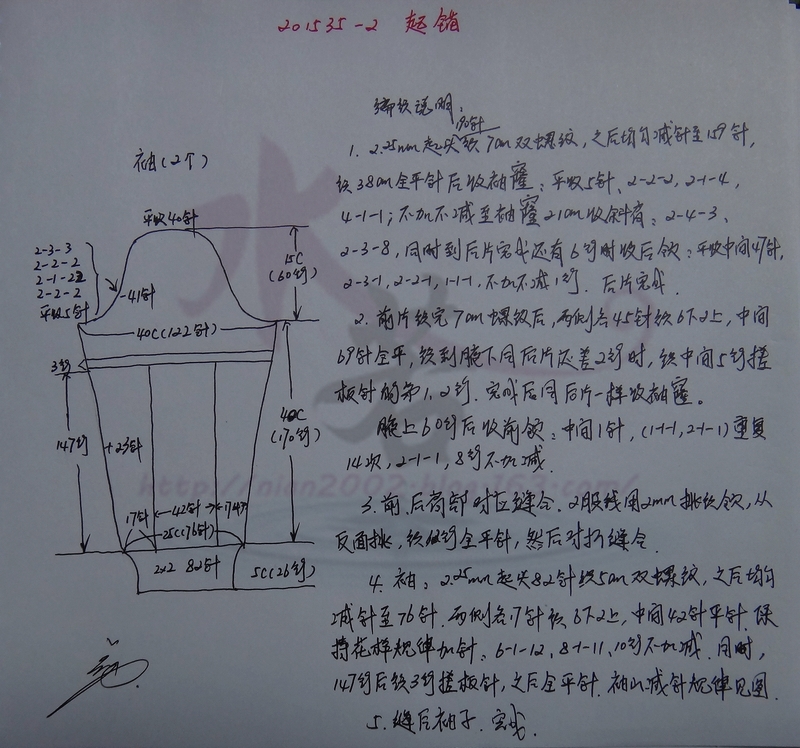 201535-2 起错
编织说明:
190针
1. 2.25mm起头织7cm双螺纹,之后均匀减针至159针,
织38cm全平针后收袖窿:平收5针、2-2-2,2-1-4,
4-1-1;不加不减至袖窿21cm收斜肩:2-4-3、
2-3-8,同时到后片完成还有6行时收后领:平收中间47针,
2-3-1,2-2-1,1-1-1,不加不减1行. 后片完成.
2. 前片织完7cm螺纹后,两侧各45针织6下2上,中间
69针全平,织到腋下同后片还差2行时,织中间5行搓
板针的第1、2行. 完成后同后片一样收袖窿。
腋上60行后收前领:中间1针,(1-1-1,2-1-1)重复
14次,2-1-1,8行不加减.
3. 前、后肩部对应缝合. 2股线用2mm挑织领,从
反面挑,织 行全平针,然后对折缝合.
4. 袖:2.25mm起头82针织5cm双螺纹,之后均匀
减针至76针. 两侧各17针织6下2上,中间42针平针. 保
持花样规律加针:6-1-12,8-1-11、10行不加减. 同时,
147行后织3行搓板针,之后全平针. 袖山减针规律见图.
5. 缝合袖子. 完成.
袖(2个)
平收40针
2-3-3
2-2-2
2-1-22
2-2-2
平收5针
-41针
15C
(60行)
40C(122针)
3行
147行
+23针
40C
(170行)
17针
42针
17针
25C(76针)
2×2 82针
5C(26行)
http://nian2002.blog.163.com/